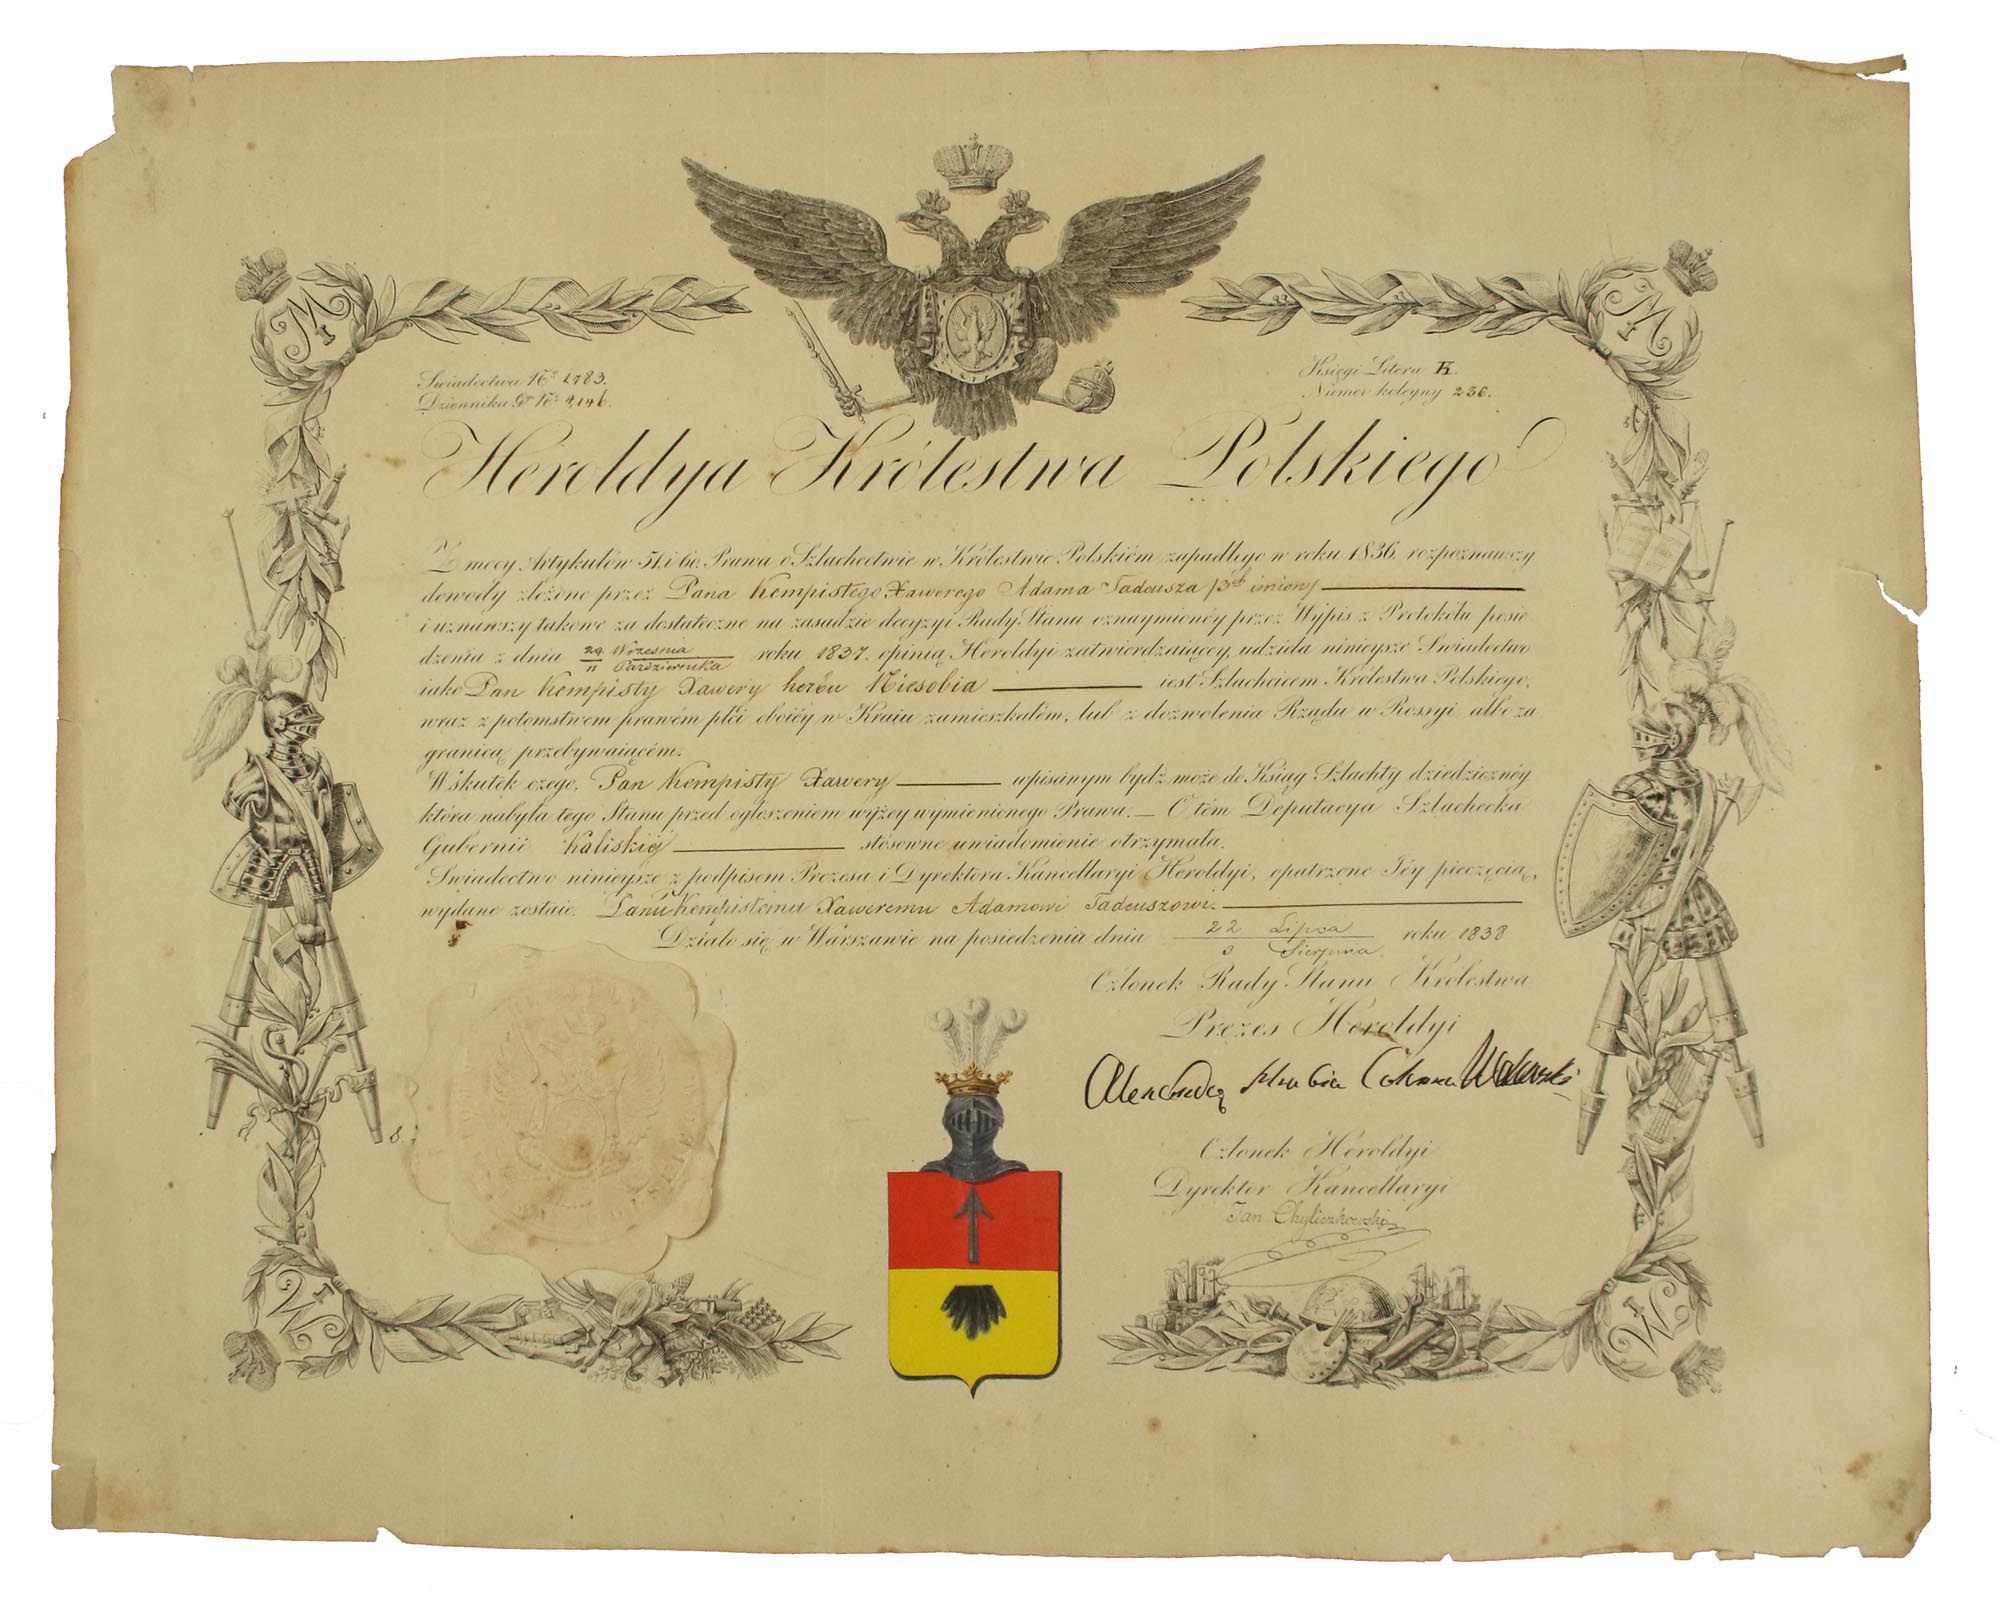 Swiadectwa No 1783.
Dziennika Gł. No 4,146.
Księgi Litera K.
Numer koleyny 236.
Heroldya Królestwa Polskiego
Z mocy Artykułów 51. i 60. Prawa o Szlachectwie w Królestwie Polskiém zapadłego w roku 1836. rozpoznawszy
dowody złożone przez Pana Kempistego Xawerego Adama Tadeusza /3ch imion/
i uznawszy takowe za dostateczne na zasadzie decyzyi Rady Stanu oznaymionéy przez Wypis z Protokółu posie
dzenia z dnia 29 Września / 11 Października roku 1837. opinią Heroldyi zatwierdzaiącey, udziela ninieysze Swiadectwo
iako Pan Kempisty Xawery herbu Niesobia iest Szlachcicem Królestwa Polskiego,
wraz z potomstwem prawém płći oboiéy w Kraiu zamieszkałém, lub z dozwolenia Rządu w Rossyi albo za
granicą przebywaiącém.
W skutek czego, Pan Kempisty Xawery wpisanym bydź może do Ksiąg Szlachty dziedzicznéy
która nabyła tego Stanu przed ogłoszeniem wyżey wymienionego Prawa. — O tém Deputacya Szlachecka
Gubernii Kaliskiéj stósowne uwiadomienie otrzymała.
Swiadectwo ninieysze z podpisem Prezesa i Dyrektora Kancellaryi Heroldyi, opatrzone Jéy pieczęcią,
wydane zostaie Panu Kempistemu Xaweremu Adamowi Tadeuszowi.
Działo się w Warszawie na posiedzeniu dnia 22 Lipca / 3 Sierpnia roku 1838
Członek Rady Stanu Królestwa
Prezes Heroldyi
Alexander Hrabia Colonna Walewski
Członek Heroldyi
Dyrektor Kancellaryi
Jan Chyliczkowski